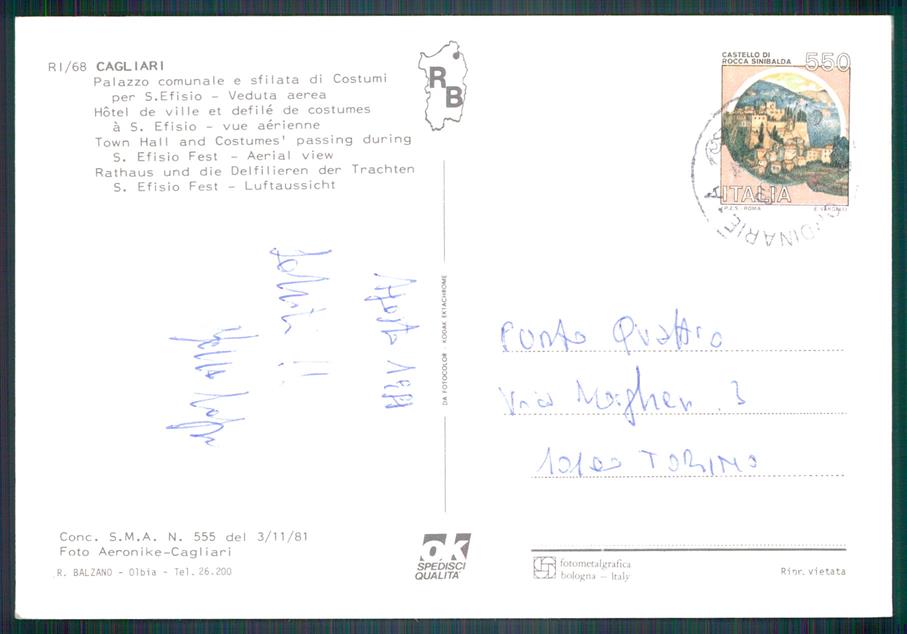 RI/68 CAGLIARI
Palazzo comunale e sfilata di Costumi
per S.Efisio - Veduta aerea
Hôtel de ville et defilé de costumes
à S. Efisio - vue aérienne
Town Hall and Costumes' passing during
S. Efisio Fest - Aerial view
Rathaus und die Delfilieren der Trachten
S. Efisio Fest - Luftaussicht
RB
CASTELLO DI
ROCCA SINIBALDA
550
ITALIA
P.Z.S. - ROMA
ORDINARIE
Agosto
DA FOTOCOLOR - KODAK EKTACHROME
Punto Quattro
Via
3
10100 TORINO
Conc. S.M.A. N. 555 del 3/11/81
Foto Aeronike-Cagliari
R. BALZANO - Olbia - Tel. 26.200
OK
SPEDISCI
QUALITA'
fotometalgrafica
bologna - Italy
Ripr. vietata